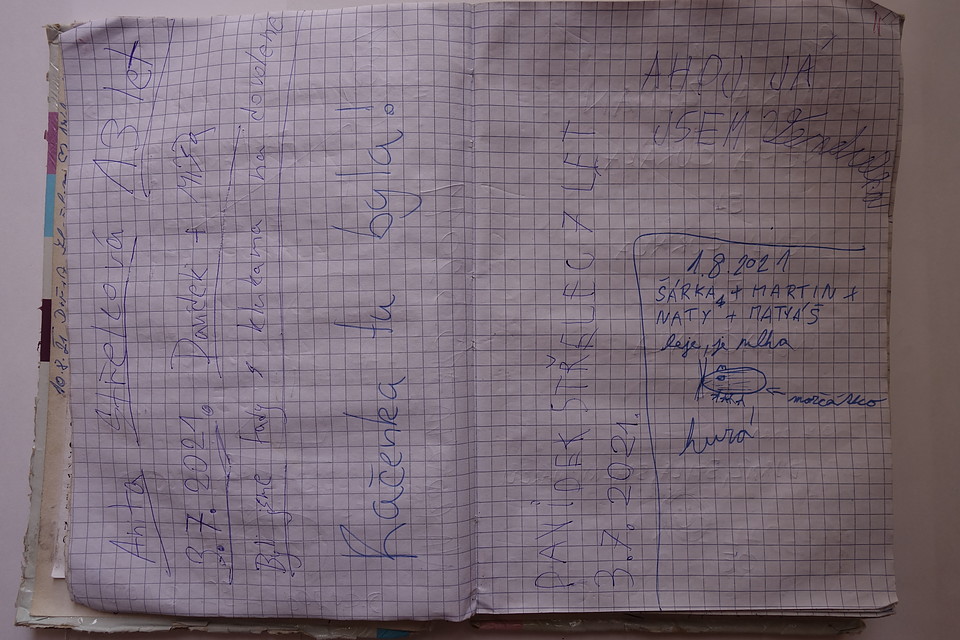 Střelcová 13 let
3.7.2021. Davídek + Míra
Byli jsme tady s klukama na dovolené
kačenka tu byla!
DAVÍDEK STŘELEC 7 LET
3.7.2021.
AHOJ JÁ
JSEM
1.8.2021
ŠÁRKA + MARTIN +
NATY + MATYÁŠ
leje, je mlha
morčátko
hurá!
10.8.21